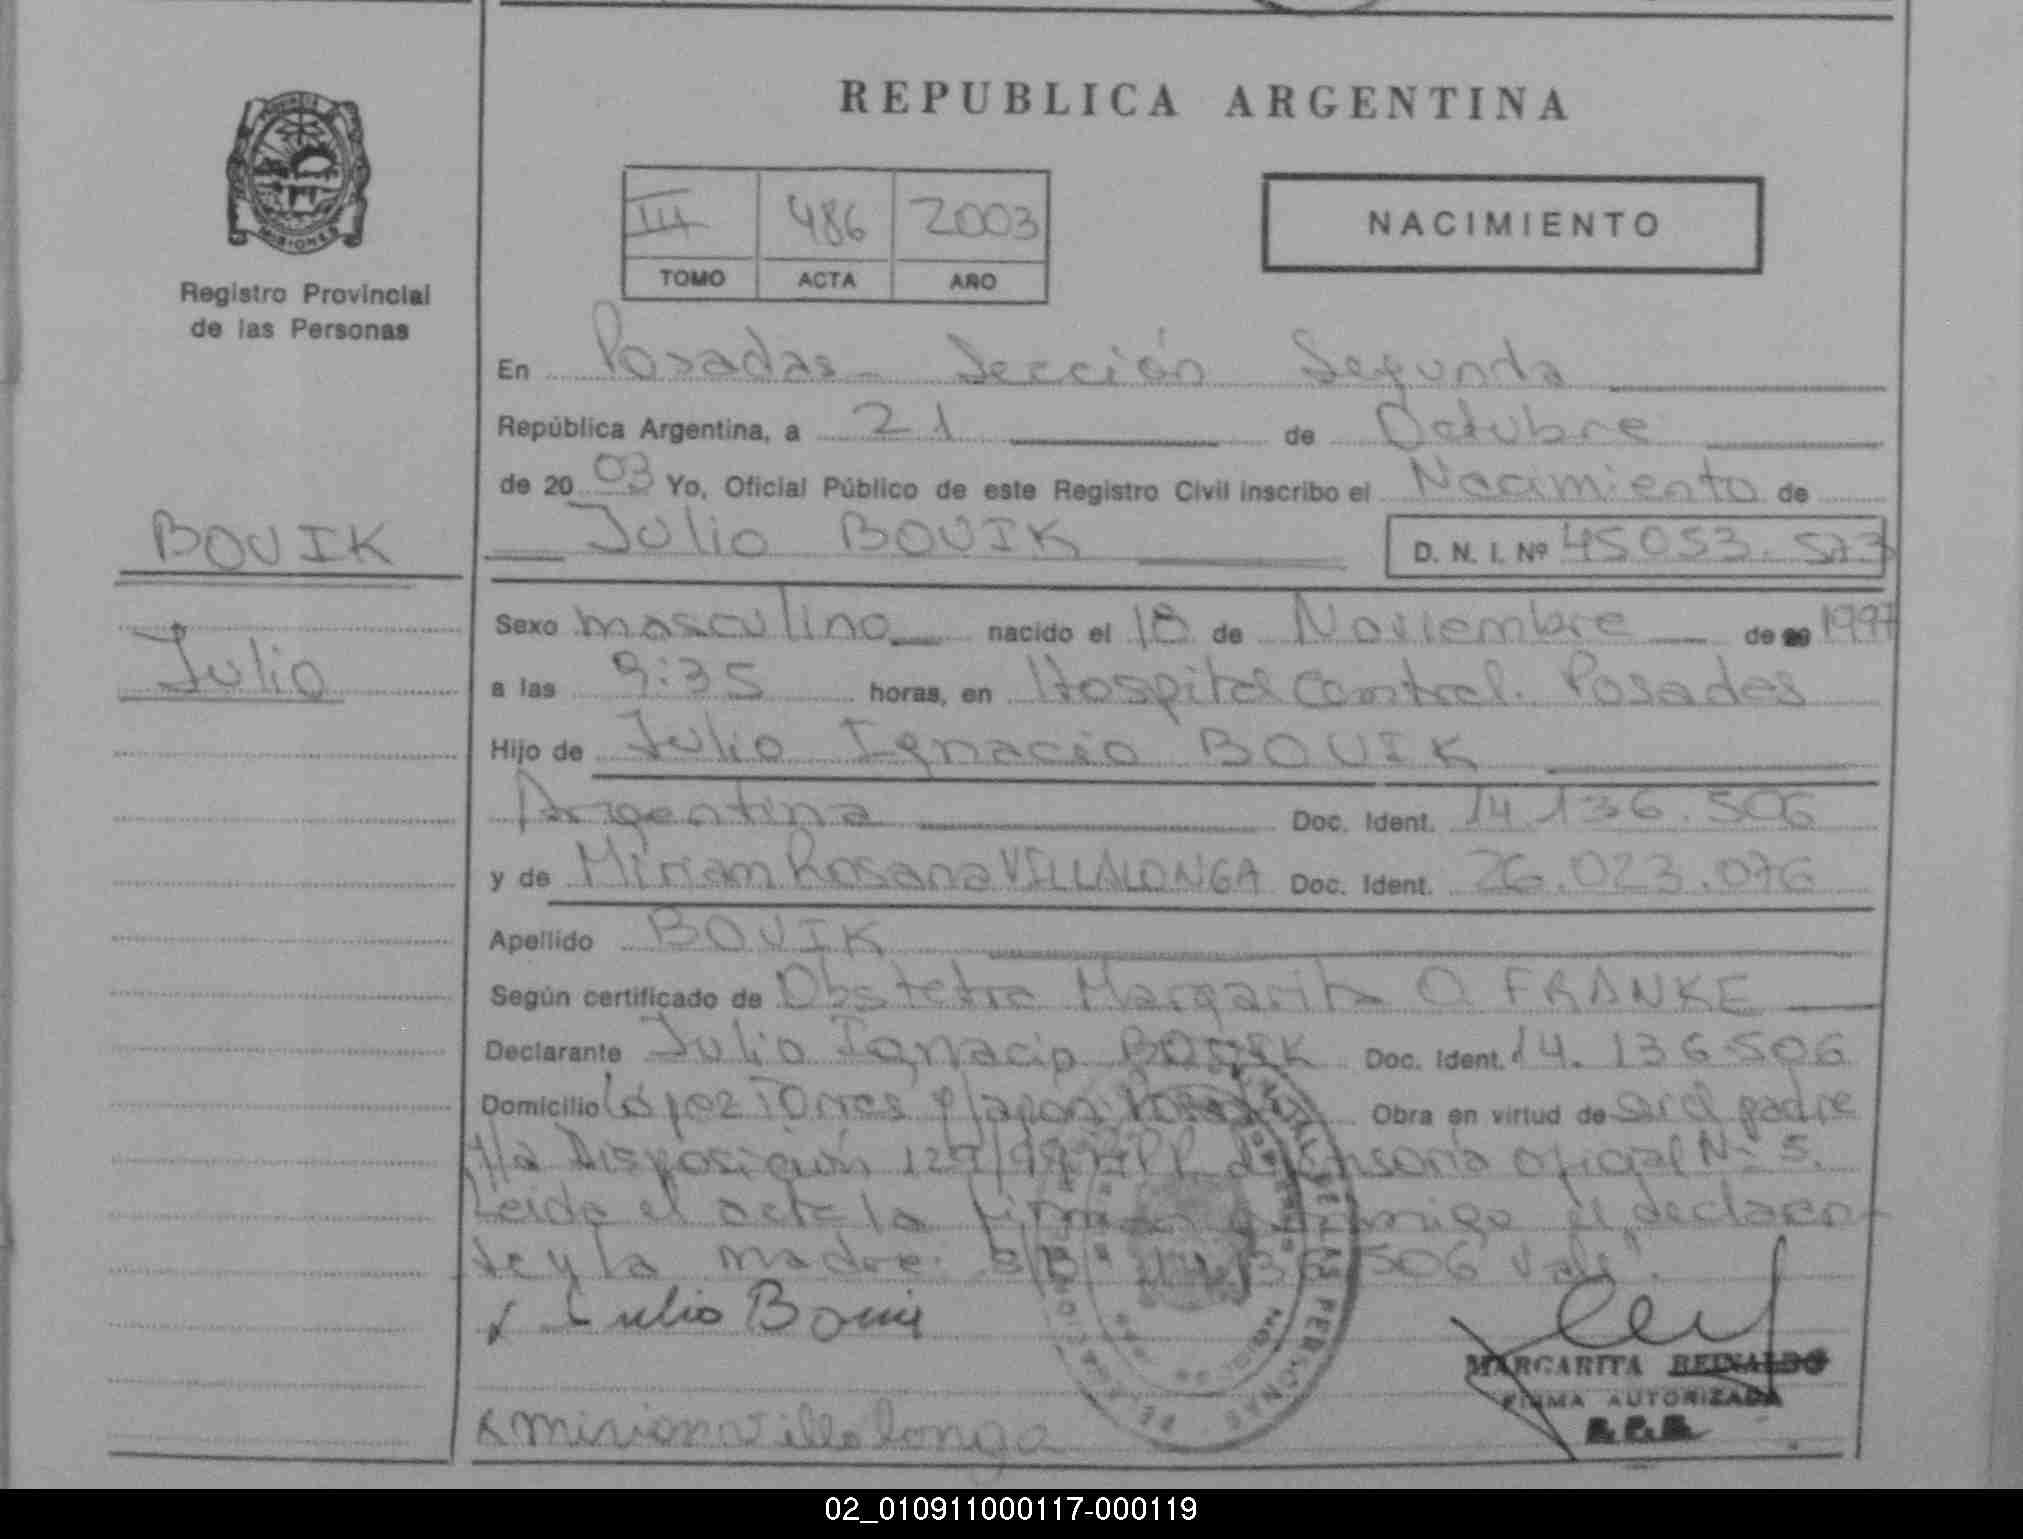 REPUBLICA ARGENTINA
MISIONES
Registro Provincial
de las Personas
III 486 2003
TOMO ACTA AÑO
NACIMIENTO
En Posadas - Sección Segunda
República Argentina, a 21 de Octubre
de 2003 Yo, Oficial Público de este Registro Civil inscribo el Nacimiento de
Julio BOVIK D. N. I. Nº 45053.573
BOVIK
Julio
Sexo masculino nacido el 18 de Noviembre de 1997
a las 9:35 horas, en Hospital Central. Posadas
Hijo de Julio Ignacio BOVIK
Argentina Doc. Ident. 14.136.506
y de Miriam Rosana VILLALONGA Doc. Ident. 26.023.076
Apellido BOVIK
Según certificado de Obstetra Margarita O. FRANKE
Declarante Julio Ignacio BOVIK Doc. Ident. 14.136506
Domicilio López Torres y Japón Obra en virtud de ser el padre
Disposición 129/99 defensoria oficial Nº 5.
Leida el acta la firman conmigo el declaran
te y la madre. 506 Vale".
Julio Bovik
MARGARITA REINALDO
FIRMA AUTORIZADA
R.P.P.
Mirian Villalonga
02_010911000117-000119